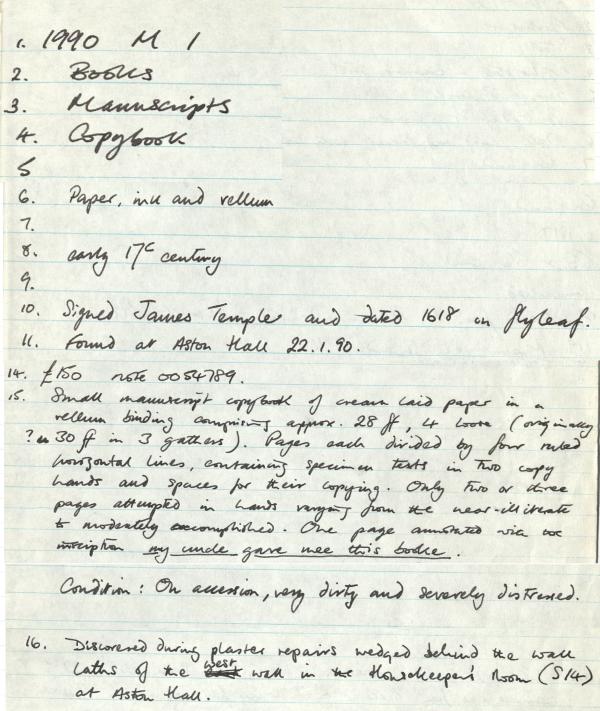 1. 1990 M 1
2. Books
3. Manuscripts
4. Copybook
5
6. Paper, ink and vellum
7.
8. early 17c century
9.
10. Signed James Temple and dated 1618 on flyleaf.
11. Found at Aston Hall 22.1.90.
14. £150 note 0054789.
15. Small manuscript copybook of cream laid paper in a
vellum binding comprising approx. 28 ff, 4 loose (originally
? 30 ff in 3 gathers). Pages each divided by four ruled
horizontal lines, containing specimen texts in two copy
hands and spaces for their copying. Only two or three
pages attempted in hands varying from the near-illiterate
to moderately accomplished. One page annotated with the
inscription my uncle gave mee this booke.
Condition: On accession, very dirty and severely distressed.
16. Discovered during plaster repairs wedged behind the wall
laths of the west wall in the Housekeeper's Room (S14)
at Aston Hall.